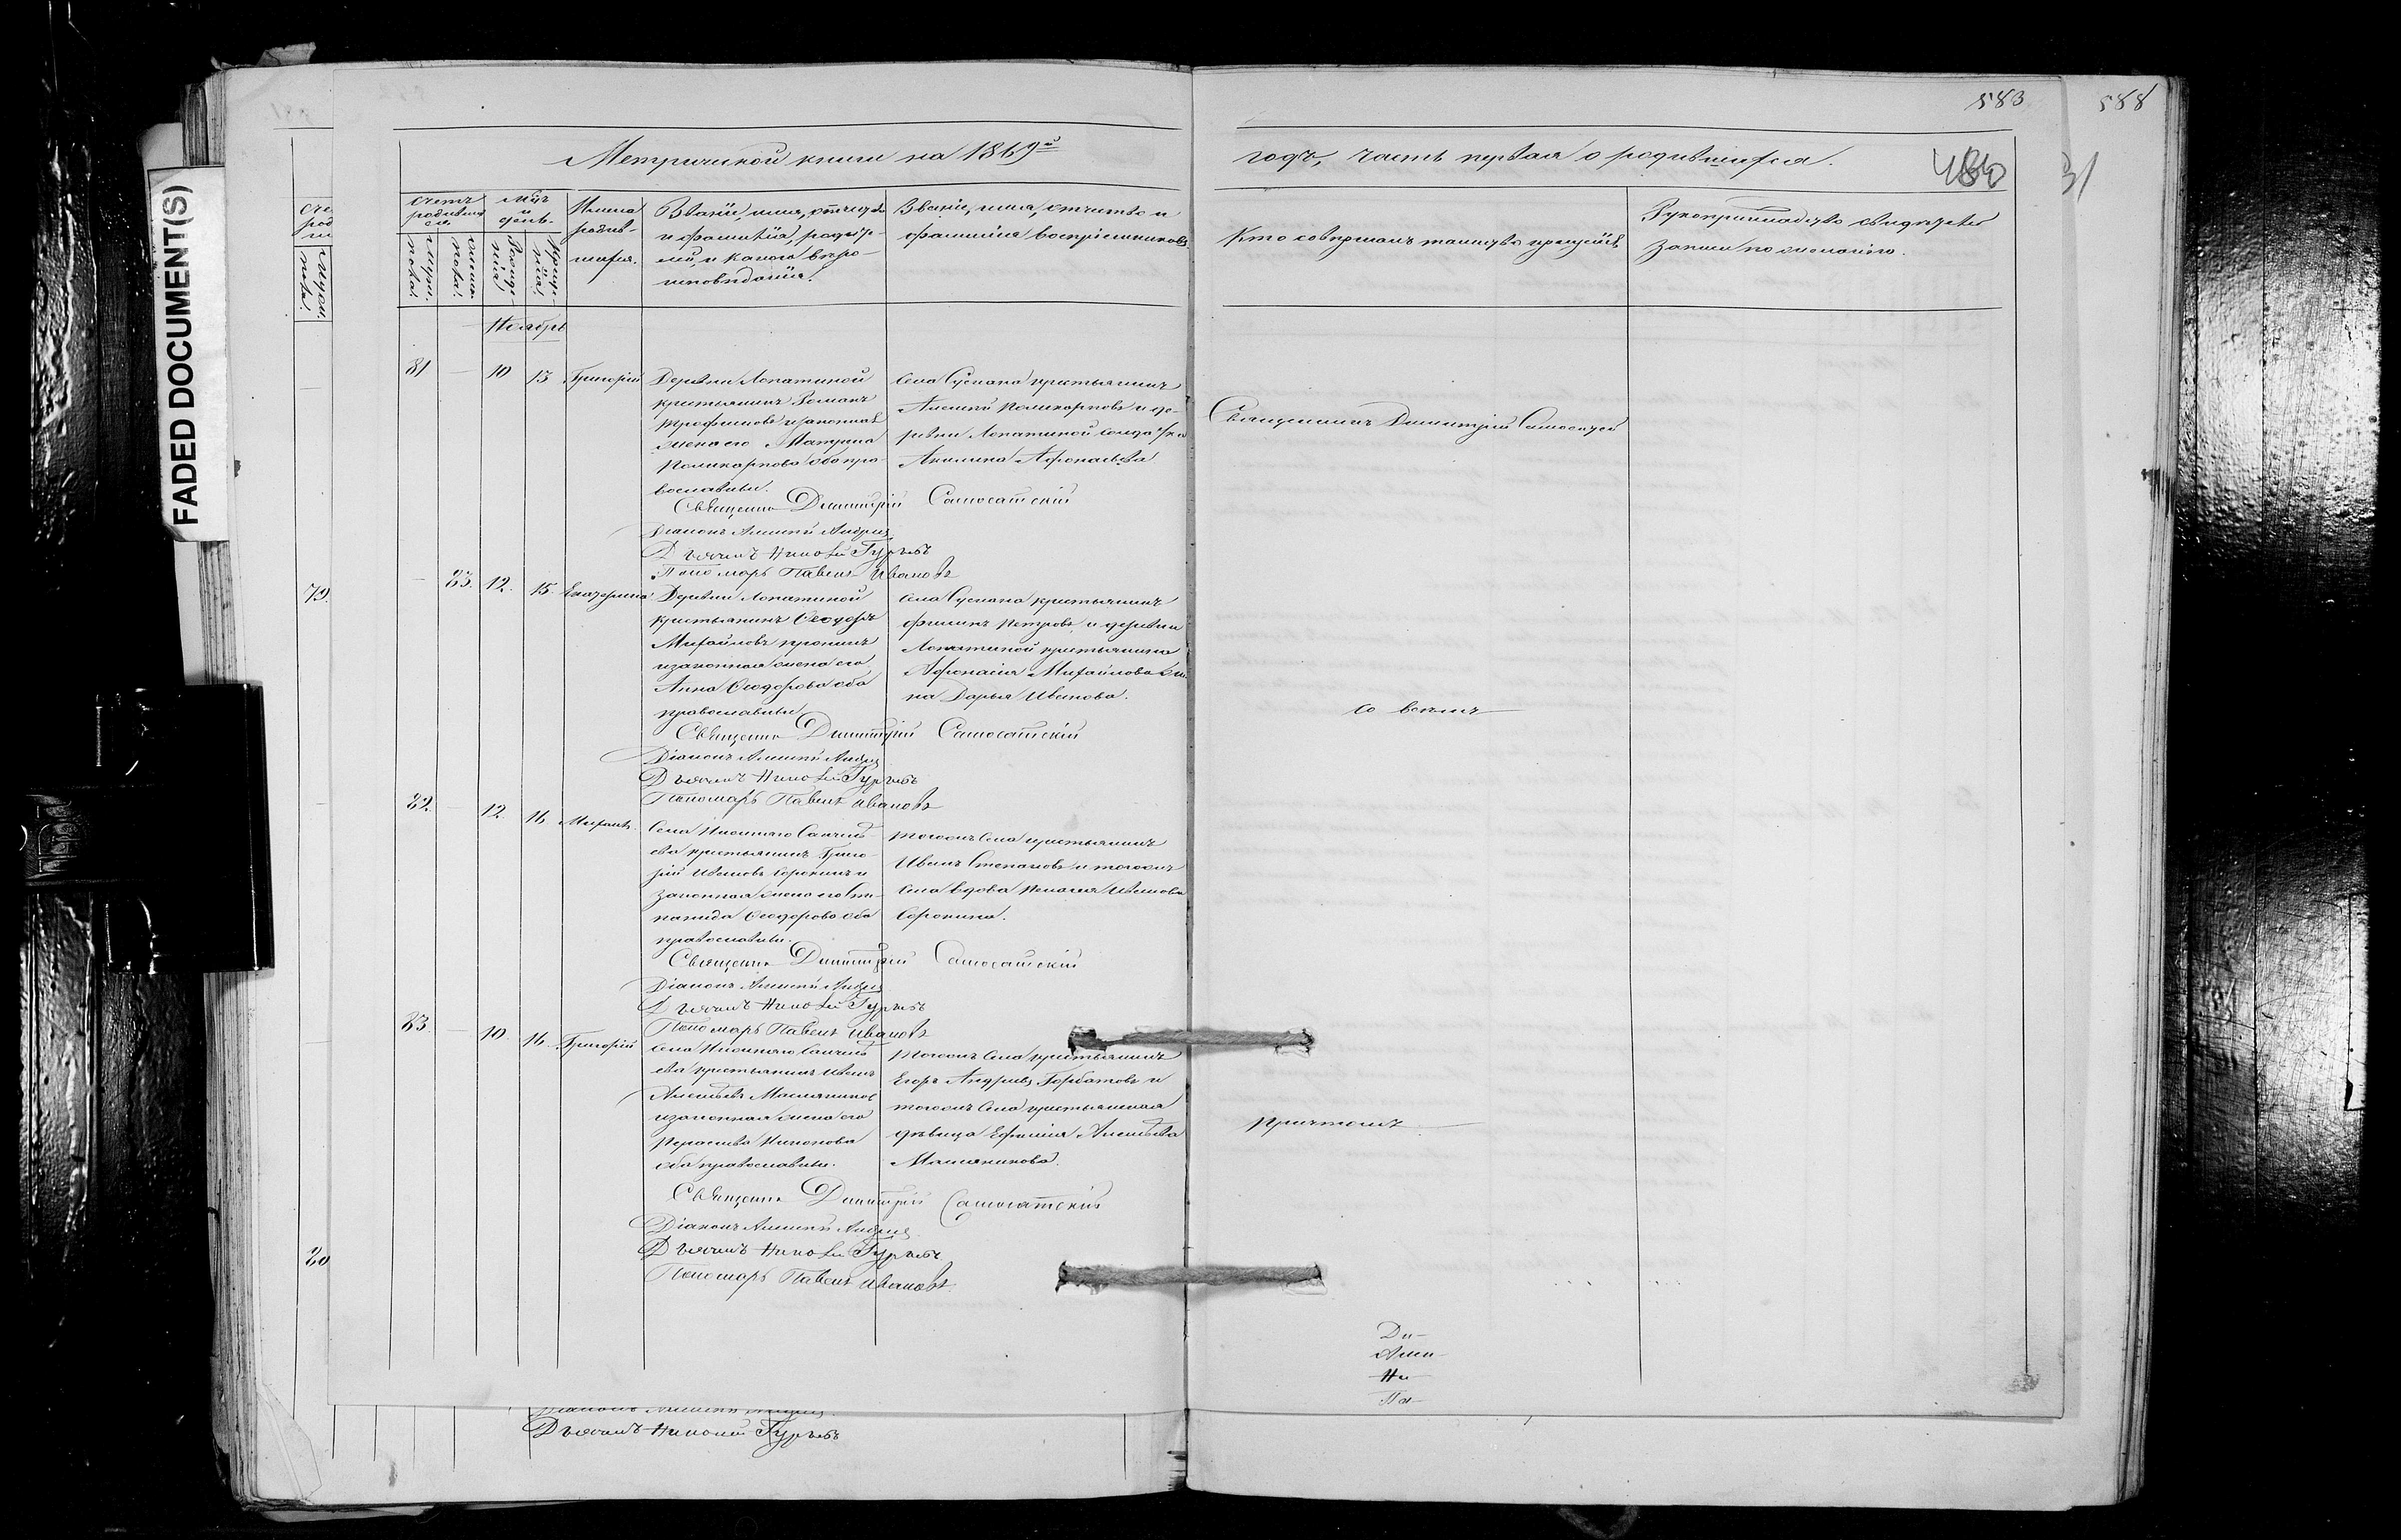 FADED DOCUMENT(S)
583
588
Метрической книги на 1869й
годъ, часть первая о родившихся.
480
31
счетъ родившихся
мужеска
женска
мѣсяцъ и день
рожденія
крещенія
Имена родив-
шихся.
Званіе, имя, отчество
и фамилія, родите-
лей, и какого вѣро-
исповѣданія.
Званіе, имя, отчество и
фамилія воспріемниковъ
Кто совершалъ таинство крещенія
Рукоприкладство свидѣтелей
записи по желанію.
Ноябрь
81 — 10 13 Григорій
Деревни Лопатиной
крестьянинъ Романъ
Трофимовъ и законная
жена его
Поликарпова оба пра-
вославные.
Села Сускана крестьянинъ
Алексѣй Поликарповъ и де-
ревни Лопатиной солдатка
Акилина Афонасьева
Священникъ Димитрій Самосатскій
Священникъ Димитрій Самосатскій
Діаконъ Алексѣй
Дьячекъ Николай Гурьевъ
Пономарь Павелъ Ивановъ
79.
— 83. 12. 15. Екатерина
Деревни Лопатиной
крестьянинъ Ѳеодоръ
Михайловъ
и законная жена его
Анна Ѳеодорова оба
православные
Села Сускана крестьянинъ
Филипъ Петровъ и деревни
Лопатиной крестьянина
Афонасія Михайлова же-
на Дарья Иванова.
со всѣмъ
Священникъ Димитрій Самосатскій
Діаконъ Алексѣй
Дьячекъ Николай Гурьевъ
Пономарь Павелъ Ивановъ
82. — 12. 16 Михаилъ.
Села Никитяго
крестьянинъ Григо-
рій Ивановъ Сорокинъ и
законная жена его Сте-
панида Ѳеодорова оба
православные.
тогожъ села крестьянинъ
Иванъ Степановъ и тогожъ
села вдова Пелагея Иванова
Сорокина.
Священникъ Димитрій Самосатскій
Діаконъ Алексѣй
Дьячекъ Николай Гурьевъ
Пономарь Павелъ Ивановъ
83. — 10. 16. Григорій
крестьянинъ Иванъ
Алексѣевъ Масляниковъ
и законная жена его
Параскева Никонова
оба православные.
тогожъ села крестьянинъ
Егоръ Андреевъ Горбатовъ и
тогожъ села крестьянская
дѣвица Ефимія Алексѣева
Масляникова.
причтомъ
Священникъ Димитрій Самосатскій
Діаконъ Алексѣй
Дьячекъ Николай Гурьевъ
Пономарь Павелъ Ивановъ.
80
Ди-
Алек-
Ни-
Па-
Дьячекъ Николай Гурьевъ